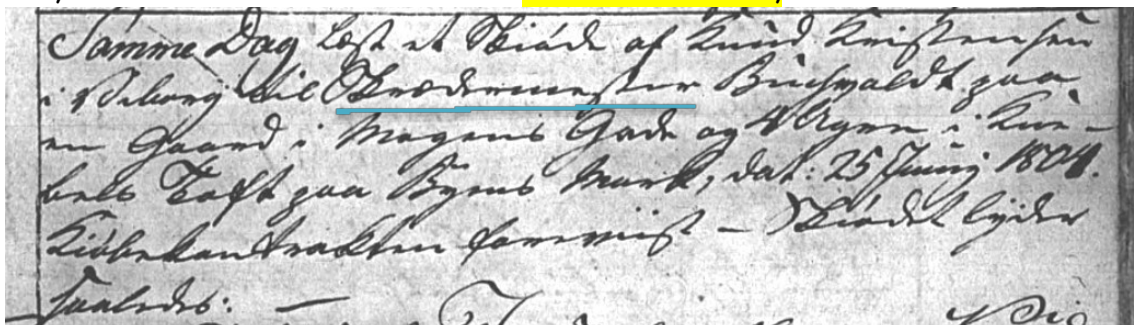 Samme Dag læst et Skiøde af Knud Kristensen
i Viborg til Skrædermester Buchwaldt paa
en Gaard i Mogens Gade og 4 Agre i
bels Toft paa Byens Mark, dat: 25 Junij 1804.
Kiøbekontrakten foreviist – Skiødet lyder
saaledes: –